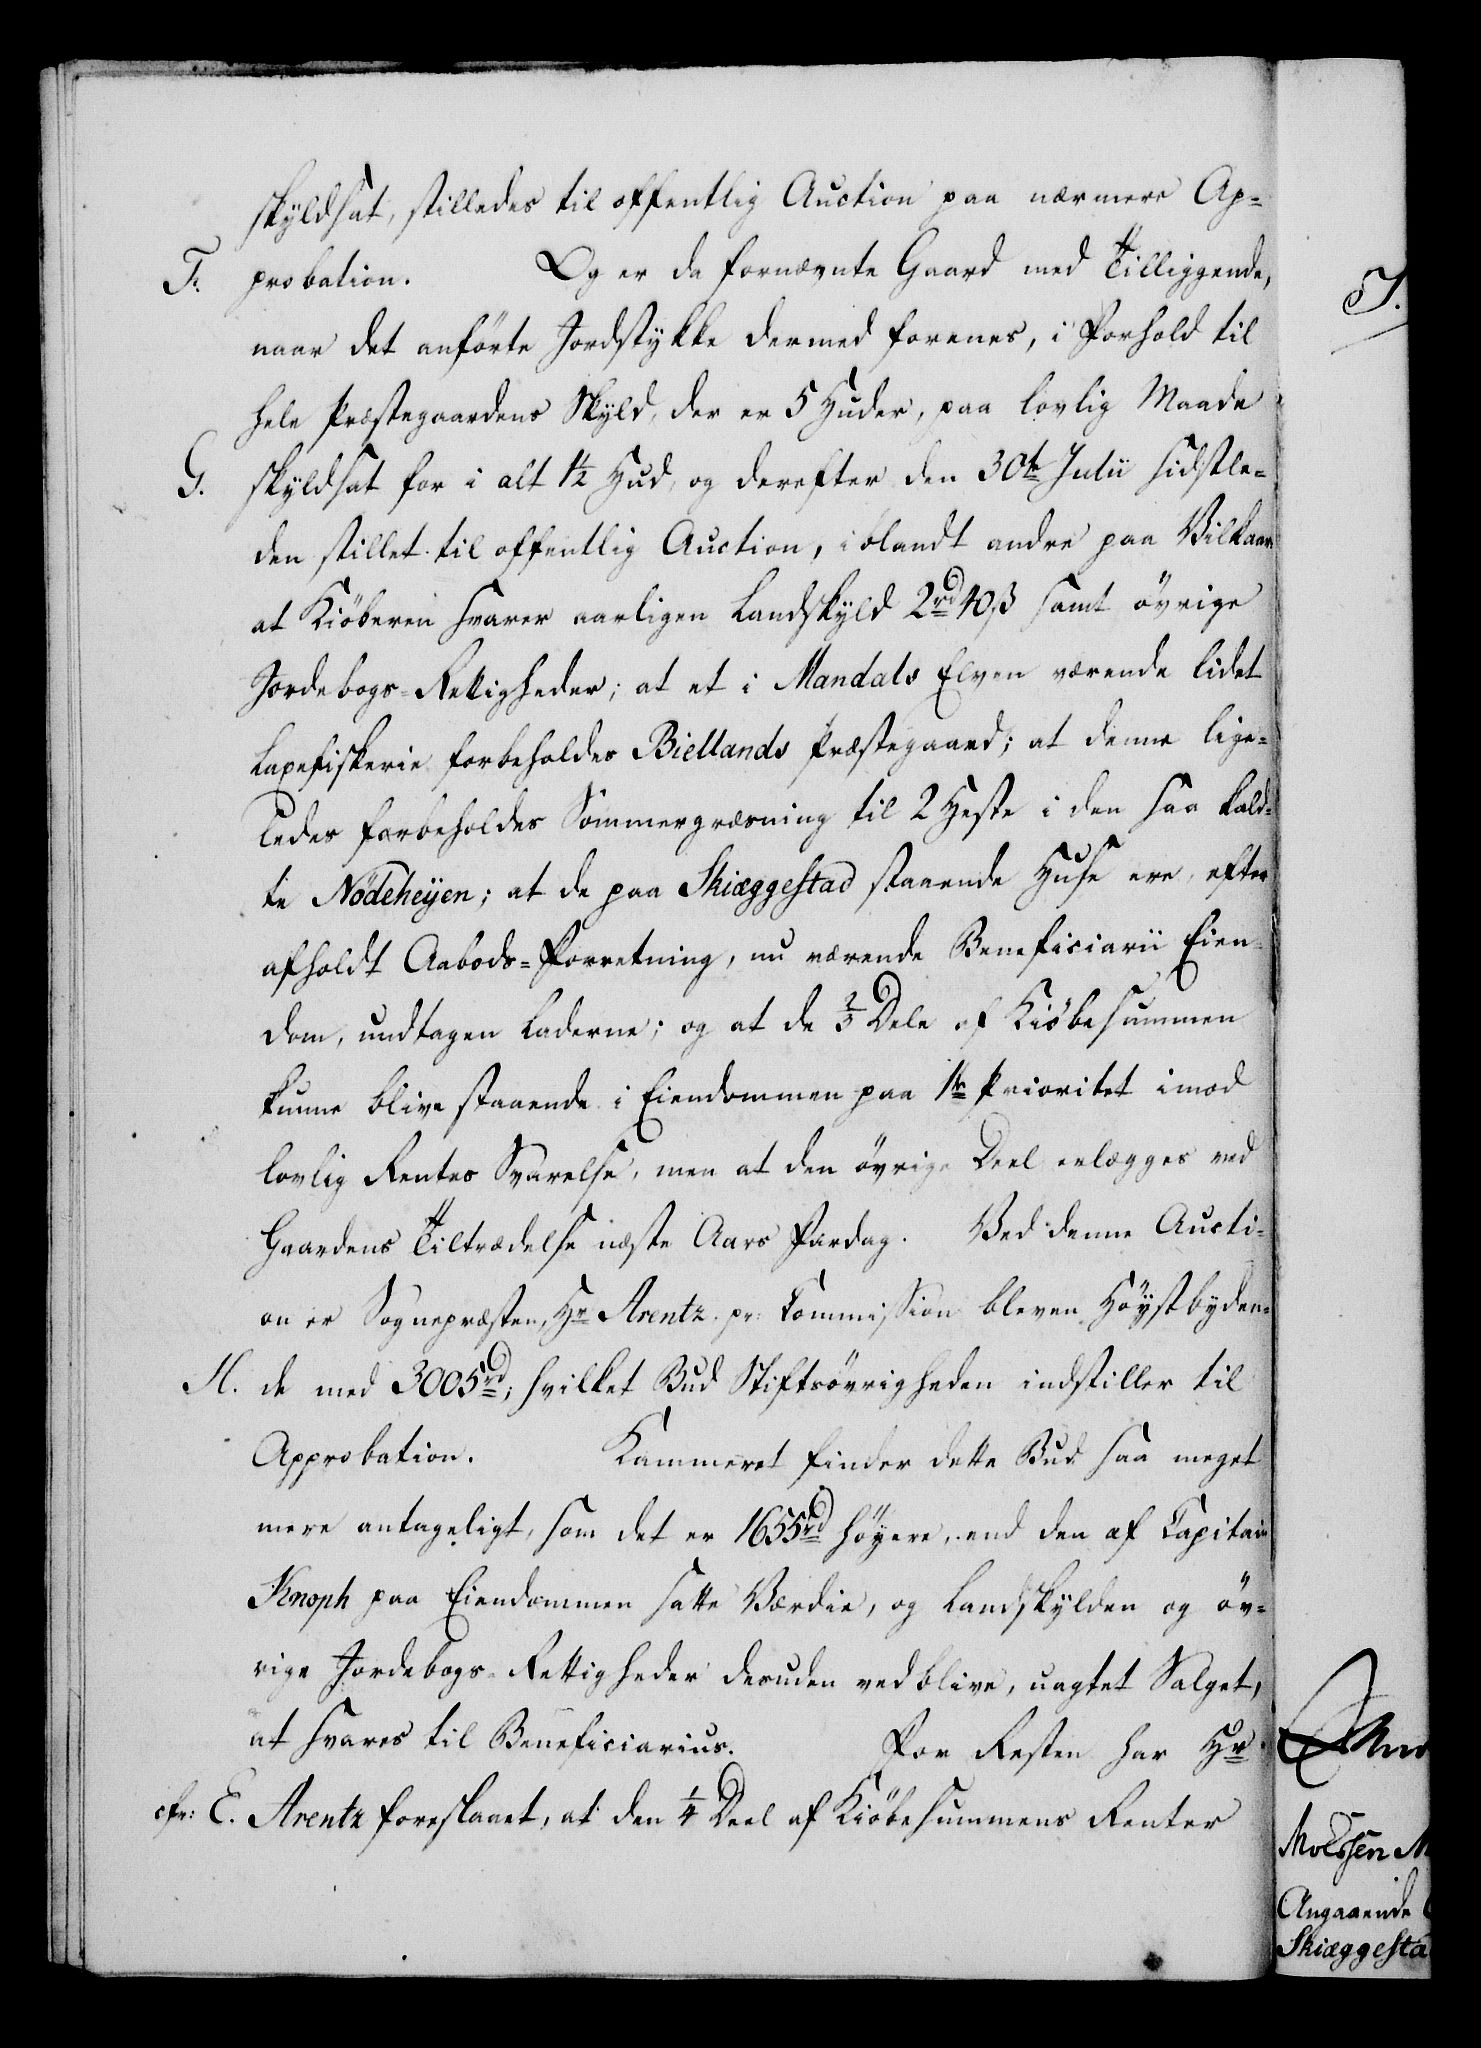 skyldsat, stilledes til offentlig Auction paa nærmere Ap=
F. probation. Og er da fornævnte Gaard med Tilliggende,
naar det anförte Jordstykke dermed forenes, i Forhold til
hele Præstegaardens Skyld, der er 5 Huder, paa lovlig Maade
G. skyldsat for i alt 1½ Hud, og derefter den 30te Julii sidstle=
den stillet til offentlig Auction, iblandt andre paa Vilkaar
at Kiöberen svarer aarligen Landskyld 2rd 40 ß samt övrige
Jordebogs=Rettigheder; at et i Mandals Elven værende lidet
Laxefiskerie forbeholdes Biellands Præstegaard; at denne lige=
ledes forbeholdes Sommergræsning til 2 Heste i den saa kald=
te Nödeheÿen; at de paa Skiæggestad staaende Huse ere, efter
afholdt Aabods=Forretning, nu værende Beneficiarii Eien=
dom, undtagen Laderne; og at de ⅔ Dele af Kiöbesummen
kunne blive staaende i Eiendommen paa 1te Prioritet imod
lovlig Rentes Svarelse, men at den övrige Deel erlægges ved
Gaardens Tiltrædelse næste Aars Fardag. Ved denne Aucti=
on er Sognepræsten, Hr Arentz pr: Commission bleven Höystbyden=
H. de med 3005rd, hvilket Bud Stiftsövrigheden indstiller til
Approbation. Kammeret finder dette Bud saa meget
mere antageligt, som det er 1655rd höyere, end den af Capitain
Knoph paa Eiendommen satte Værdie, og Landskylden og öv=
rige Jordebogs=Rettigheder desuden vedblive, uagtet Salget,
at svares til Beneficiarius. For Resten har Hr
cfr: E. Arentz foreslaaet, at den ¼ Deel af Kiöbesummens Renter
J.
Angaaende
Skiæggesta